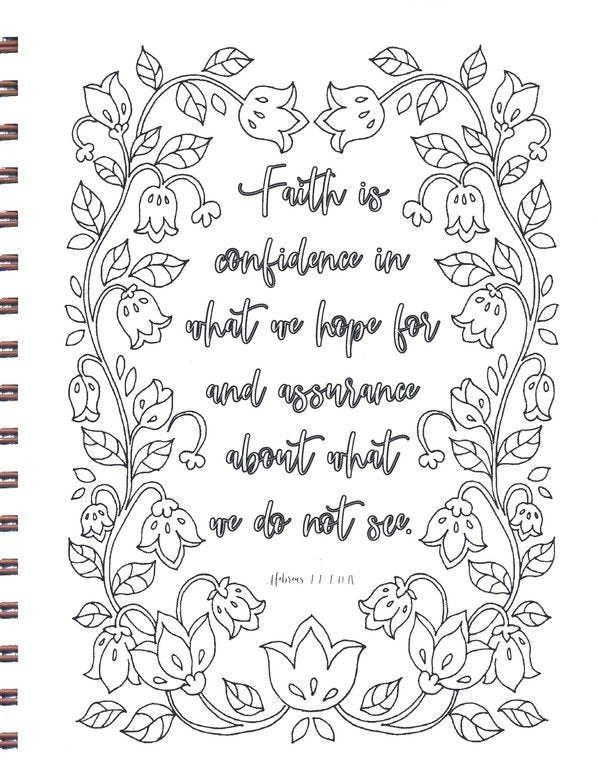 Faith is
confidence in
what we hope for
and assurance
about what
we do not see.
Hebrews 11:1 NIV